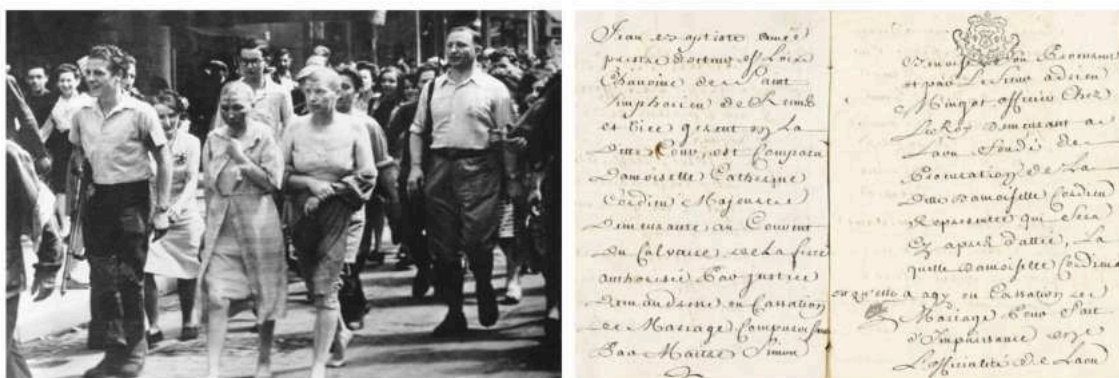 Jean Baptiste
prestre docteur
Chanoine de Saint
Simphorien de Reims
et Vice gerent en La
Ditte Cour, est Comparu
Damoiselle Catherine
Cordieu Majeure
Demeurante au Couvent
Du Calvaire de La fere
authorisée Par justice
Demanderesse en Cassation
de Mariage
Par Maitre Simon
Procureur
et par Le Sieur adrien
Mingot officier Chez
Le Roy Demeurant a
Laon fondé de
Procuration de La
ditte Damoiselle Cordieu
Representée qui Sera
Cy apres La
quelle Damoiselle Cordieu
a agy en Cassation de
Mariage Pour fait
d'Impuissance en
L'officialité de Laon